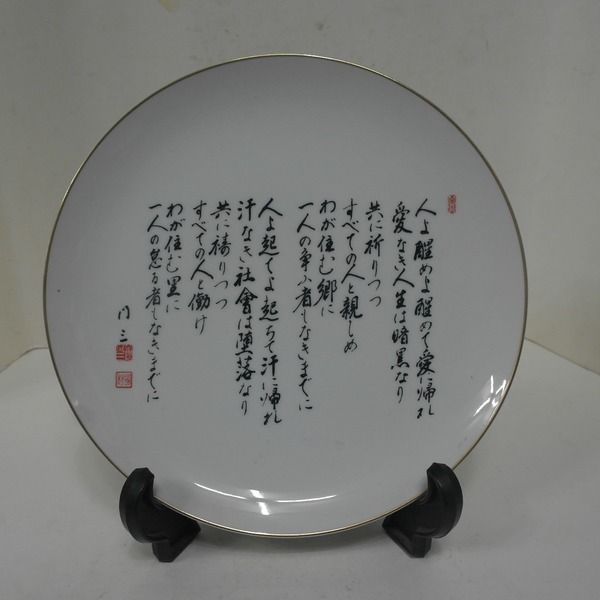 人よ醒めよ醒めて愛に帰れ
愛なき人生は暗黒なり
共に祈りつつ
すべての人と親しめ
わが住む郷に
一人の争ふ者もなきまでに
人よ起てよ起ちて汗に帰れ
汗なき社會は堕落なり
共に禱りつつ
すべての人と働け
わが住む里に
一人の怠る者もなきまでに
門三